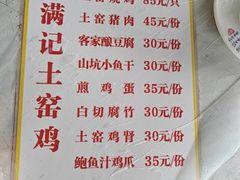 满记土窑鸡
土窑烧鸡 85元/只
土窑猪肉 45元/份
客家酿豆腐 30元/份
山坑小鱼干 30元/份
煎鸡蛋 35元/份
白切腐竹 30元/份
土窑鸡肾 30元/份
鲍鱼汁鸡爪 35元/份